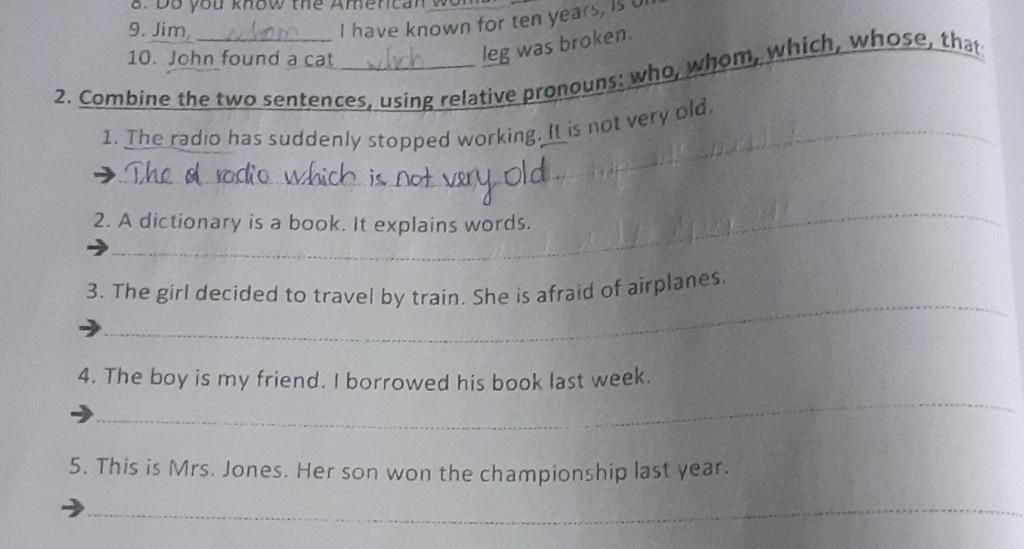 8. Do you know the American
9. Jim, whom I have known for ten years, is
10. John found a cat which leg was broken.
2. Combine the two sentences, using relative pronouns: who, whom, which, whose, that:
1. The radio has suddenly stopped working. It is not very old.
→ The radio which is not very old.
2. A dictionary is a book. It explains words.
→
3. The girl decided to travel by train. She is afraid of airplanes.
→
4. The boy is my friend. I borrowed his book last week.
→
5. This is Mrs. Jones. Her son won the championship last year.
→